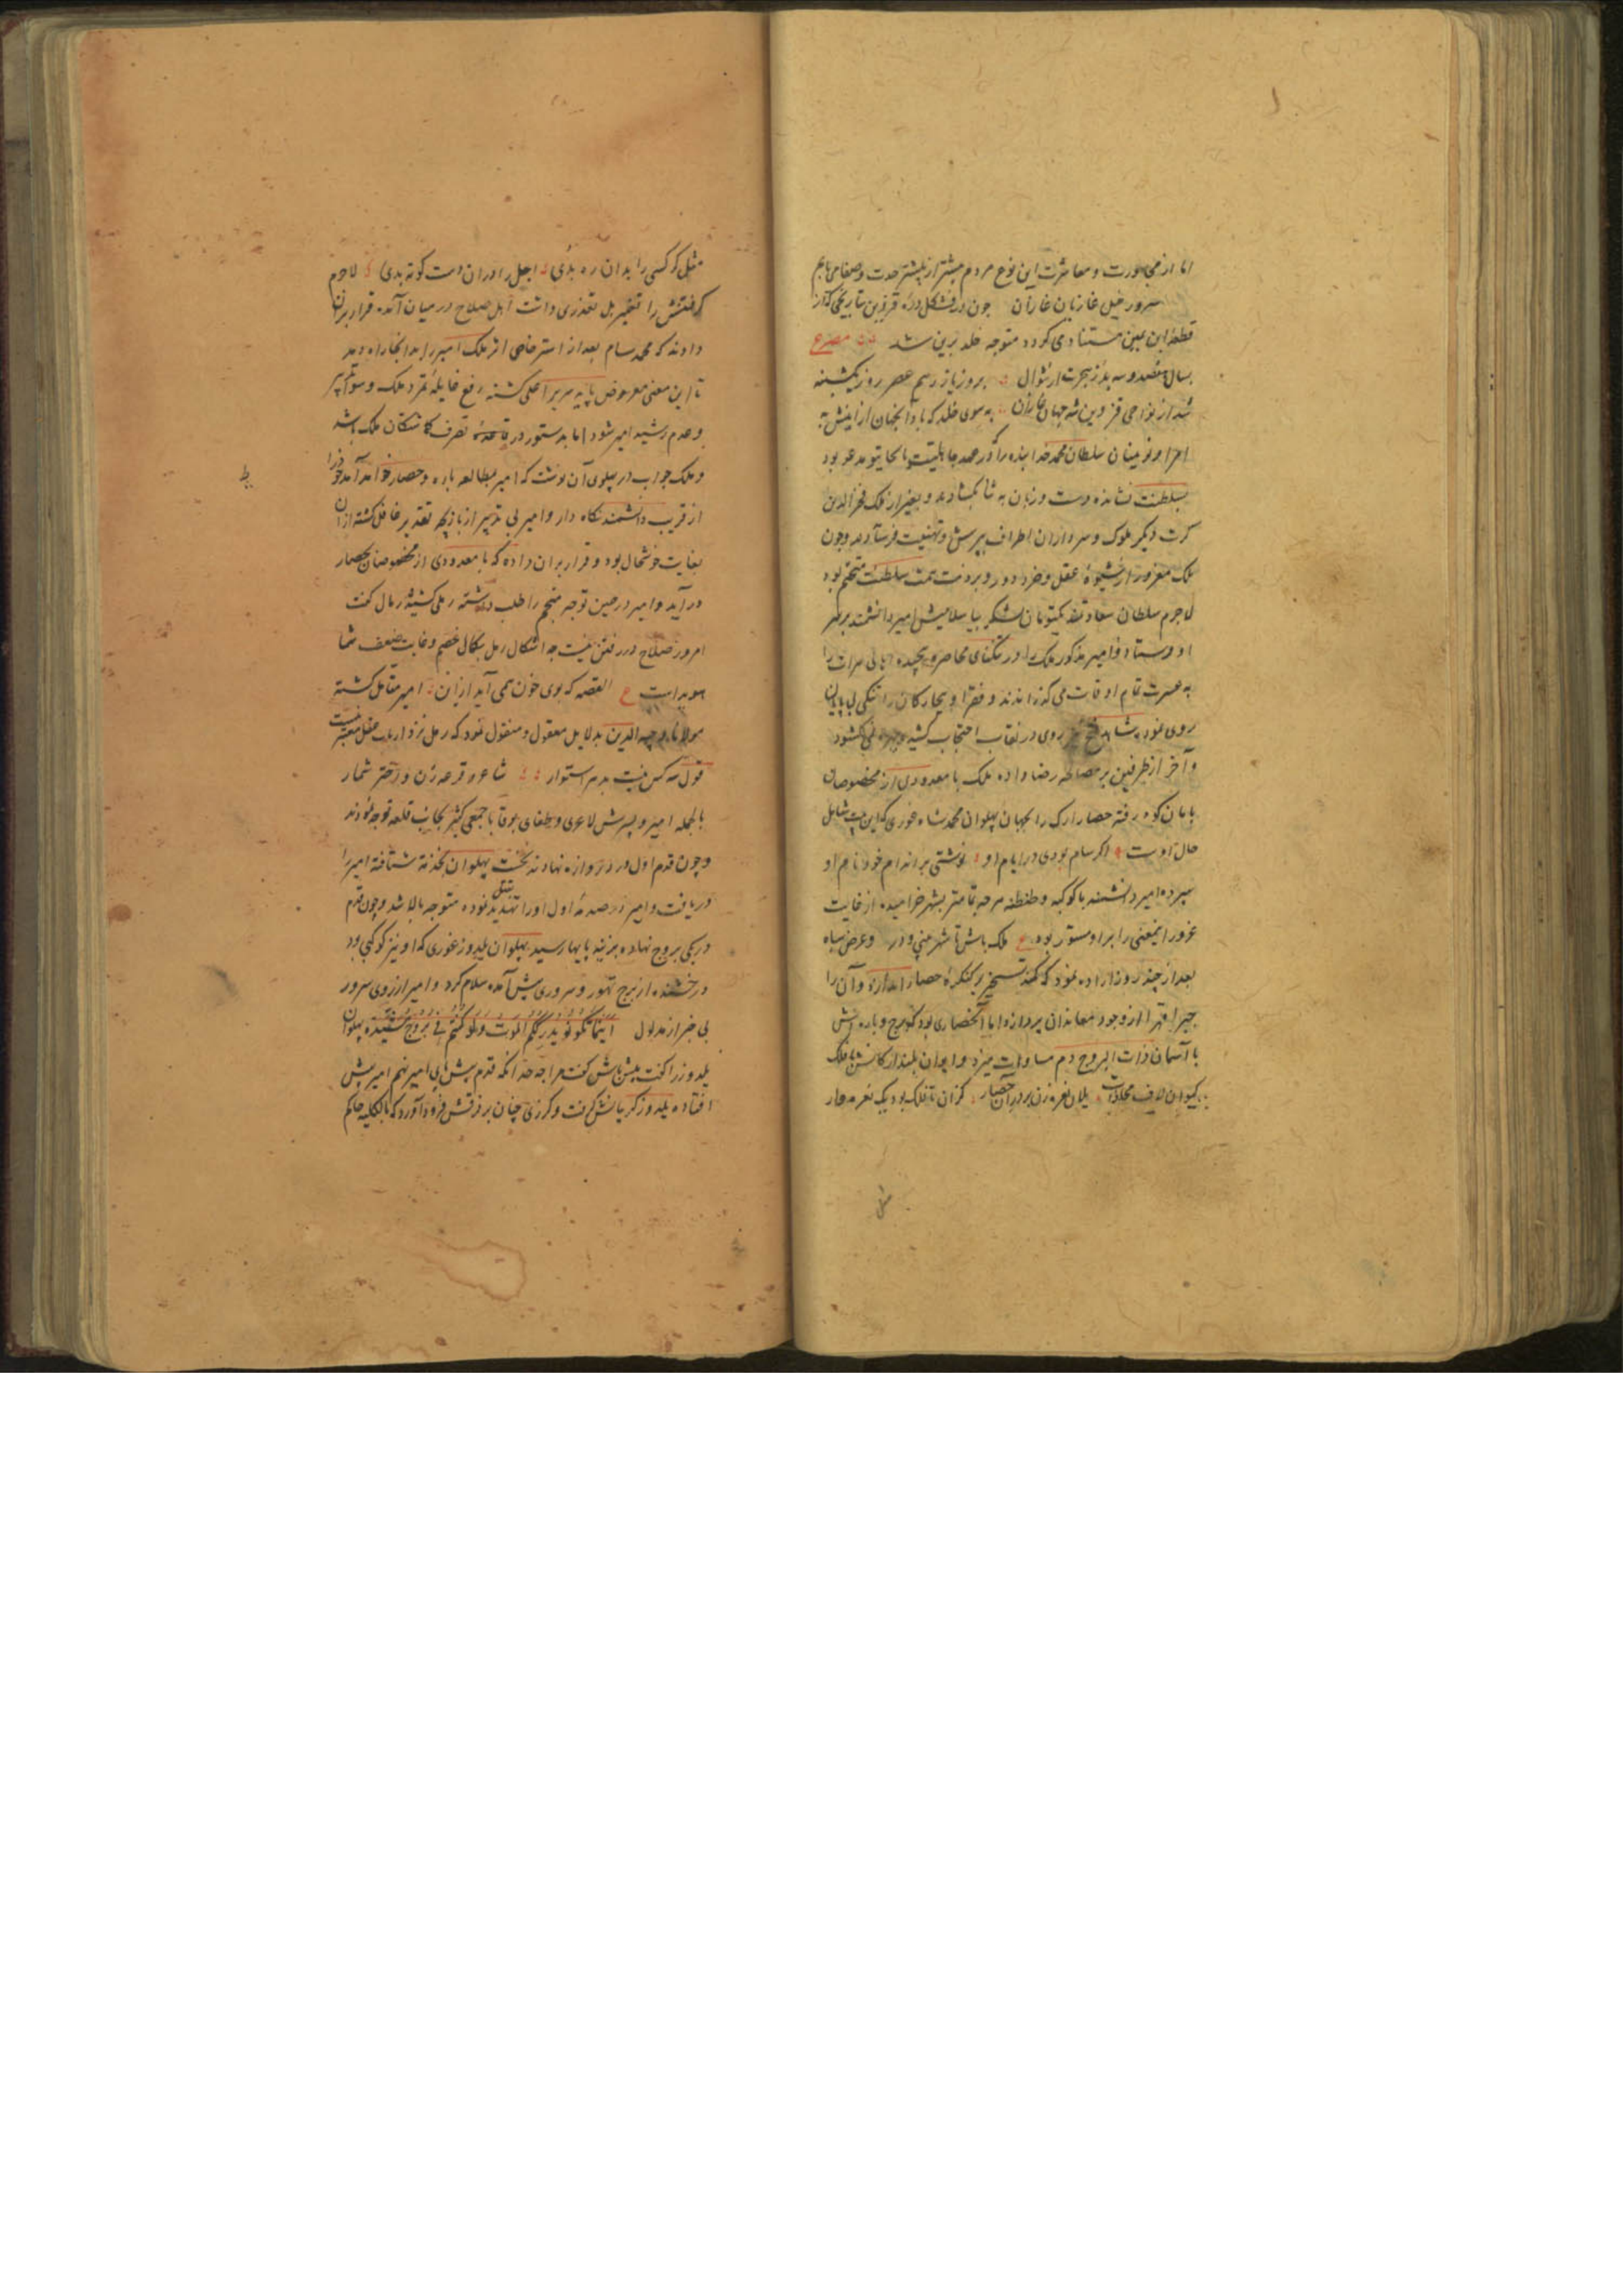 اما از مجاورت و معاشرت این نوع مردم بیشتر از پیشتر حدت و صفا می یابم
سرور خیل غازیان غازان چون در فشکل دره قزوین بتاریخی که از
قطعهٔ ابن یمین مستفاد می گردد متوجه خلد برین شد مصرع
بسال هفتصد و سه بد ز هجرت از شوال بروز یازدهم عصر روز یکشنبه
شد از نواحی قزوین شه جهان غازان به سوی خلد که باد آنجهان ازینش به
امرا و نوینان سلطان محمد خدابنده را که در عهد جاهلیت بالجایتو مدعو بود
بسلطنت نشانده دست و زبان به نثار بگشادند و بغیر از ملک فخرالدین
کرت دیگر ملوک و سرداران اطراف بپرسش و تهنیت فرستادند و چون
ملک مغرور از شیوهٔ عقل و خرد دور و بر ذمت همت سلطنت متحتم بود
لاجرم سلطان یکتومان لشکر بباسلامیش امیر دانشمند بر سر
او فرستاد و امیر مذکور ملک را در تنگنای محاصره پیچیده اهالی هرات را
به عسرت تمام اوقات می گذرانیدند و فقرا و بیچارگان را تنگی بی پایان
روی نموده شاهد فتح نیز روی در نقاب احتجاب کشیده چهره نمی گشود
و آخر از طرفین بر مصالحه رضا داده ملک با معدودی از مخصوصان
بامان کوه رفته حصار ارک را بجهان پهلوان محمد شاه غوری که این بیت شامل
حال اوست اگر سام بودی در ایام او نوشتی بر اندام خود نام او
سپرد و امیر دانشمند با کوکبه و طنطنه هر چه تمامتر بشهر خرامیده از غایت
غرور اینمعنی را بر او مستور بود ع ملک باش تا شهر بینی و در و عرض سپاه
بعد از چند روز اراده نمود که کمند تسخیر بر کنگرهٔ حصار اندازد و آن را
جبرا قهرا از وجود معاندان بپردازد اما آنحصاری بود که برج و باره اش
با آسمان ذات البروج دم مساوات میزد و ایوان بلند ارکانش با فلک
کیوان لاف محاذات یلان نعره زن بر در آن حصار کزان تا فلک بود یک نعره وار
مثل
مثل گر کسی را بدان ره بدی اجل را دران دست کوته بدی لاجرم
گرفتنش را تعسر بل تعذری داشت اهل صلاح در میان آمده قرار بران
دادند که محمد سام بعد از استرضای از ملک امیر را بدانجا راه دهد
تا این معنی معروض پایهٔ سریر اعلی گشته رفع غایلهٔ تمرد ملک و سوء تدبیر
و عدم رشید امیر شود اما بدستور در قاعده تصرف گماشتگان ملک باشد
و ملک جواب در پهلوی آن نوشت که امیر بمطالعه باره و حصار خواهد آمد خود را
از فریب دانشمند نگاه دار و امیر بی تدبیر از بازیچه تقدیر غافل گشته ازان
بغایت خوشحال بود و قرار بران داده که با معدودی از مخصوصان بحصار
در آید و امیر در حین توجه منجم را طلب داشته رملی کشیده رمال گفت
امروز صلاح در رفتن نیست چه اشکال رمل بکمال خصم و غایت ضعف شما
هویداست ع القصه که بوی خون همی آید ازان امیر متأمل گشته
مولانا وجیه الدین بدلایل معقول و منقول نمود که رمل نزد ارباب عقل معتبر نیست
قول سه کس نیست بدهر استوار شاعر و قرعه زن و اختر شمار
بالجمله امیر و پسرش لاغری و طغای بوقا با جمعی کثیر بجانب قلعه توجه نمودند
و چون قدم اول در دروازه نهادند نخست پهلوان بخدمت شتافته امیر را
دریافت و امیر در صدمهٔ اول او را تهدید بقتل نموده متوجه بالا شد و چون قدم
در یکی بروج نهاده بزینه پایها رسید پهلوان یلدوز غوری که او نیز کوکبی بود
درخشنده از برج تهور و سروری پیش آمده سلام کرد و امیر از روی سرور
بی خبر از مدلول اینما تکونوا یدرککم الموت ولو کنتم فی بروج مشیدة پهلوان
یلدوز را گفت پیش باش گفت مرا چه حد آنکه قدم پیش پای امیر نهم امیر پیش
افتاده یلدوز گریبانش گرفت و گرزی چنان بر فرقش فرود آورد که بالکلیه حاکم